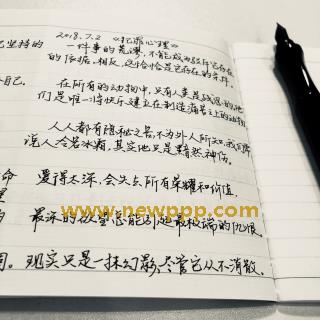 己坚持的
2018.7.2 《犯罪心理》
一件事的荒谬,不能成为驳斥它存在
的依据。相反,这恰恰是它存在的条件。
自己.
在所有的动物中,只有人类是残忍的,他
们是唯一将快乐建立在制造痛苦上的动物
人人都有隐秘之苦,不为外人所知,我们常
说人冷若冰霜,其实他只是黯然神伤。
命
爱得太深,会失去所有荣耀和价值.
www.newppp.com
最深的欲望总能引起最极端的仇恨.
同。现实只是一抹幻影,尽管它从不消散.